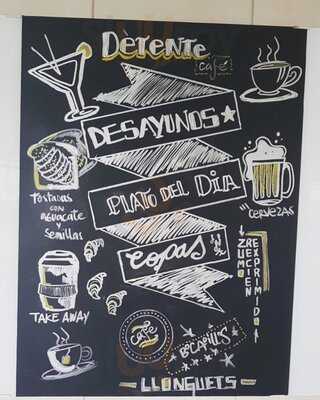 Detente
café
DESAYUNOS
PLATO DEL DIA
COPAS
TOSTADAS
CON
AGUACATE
Y
Semillas
CERVEZAS
ZUMO
RECIEN
EXPRIMIDO
TAKE AWAY
Café
BOCAPILLS
LLONGUETS